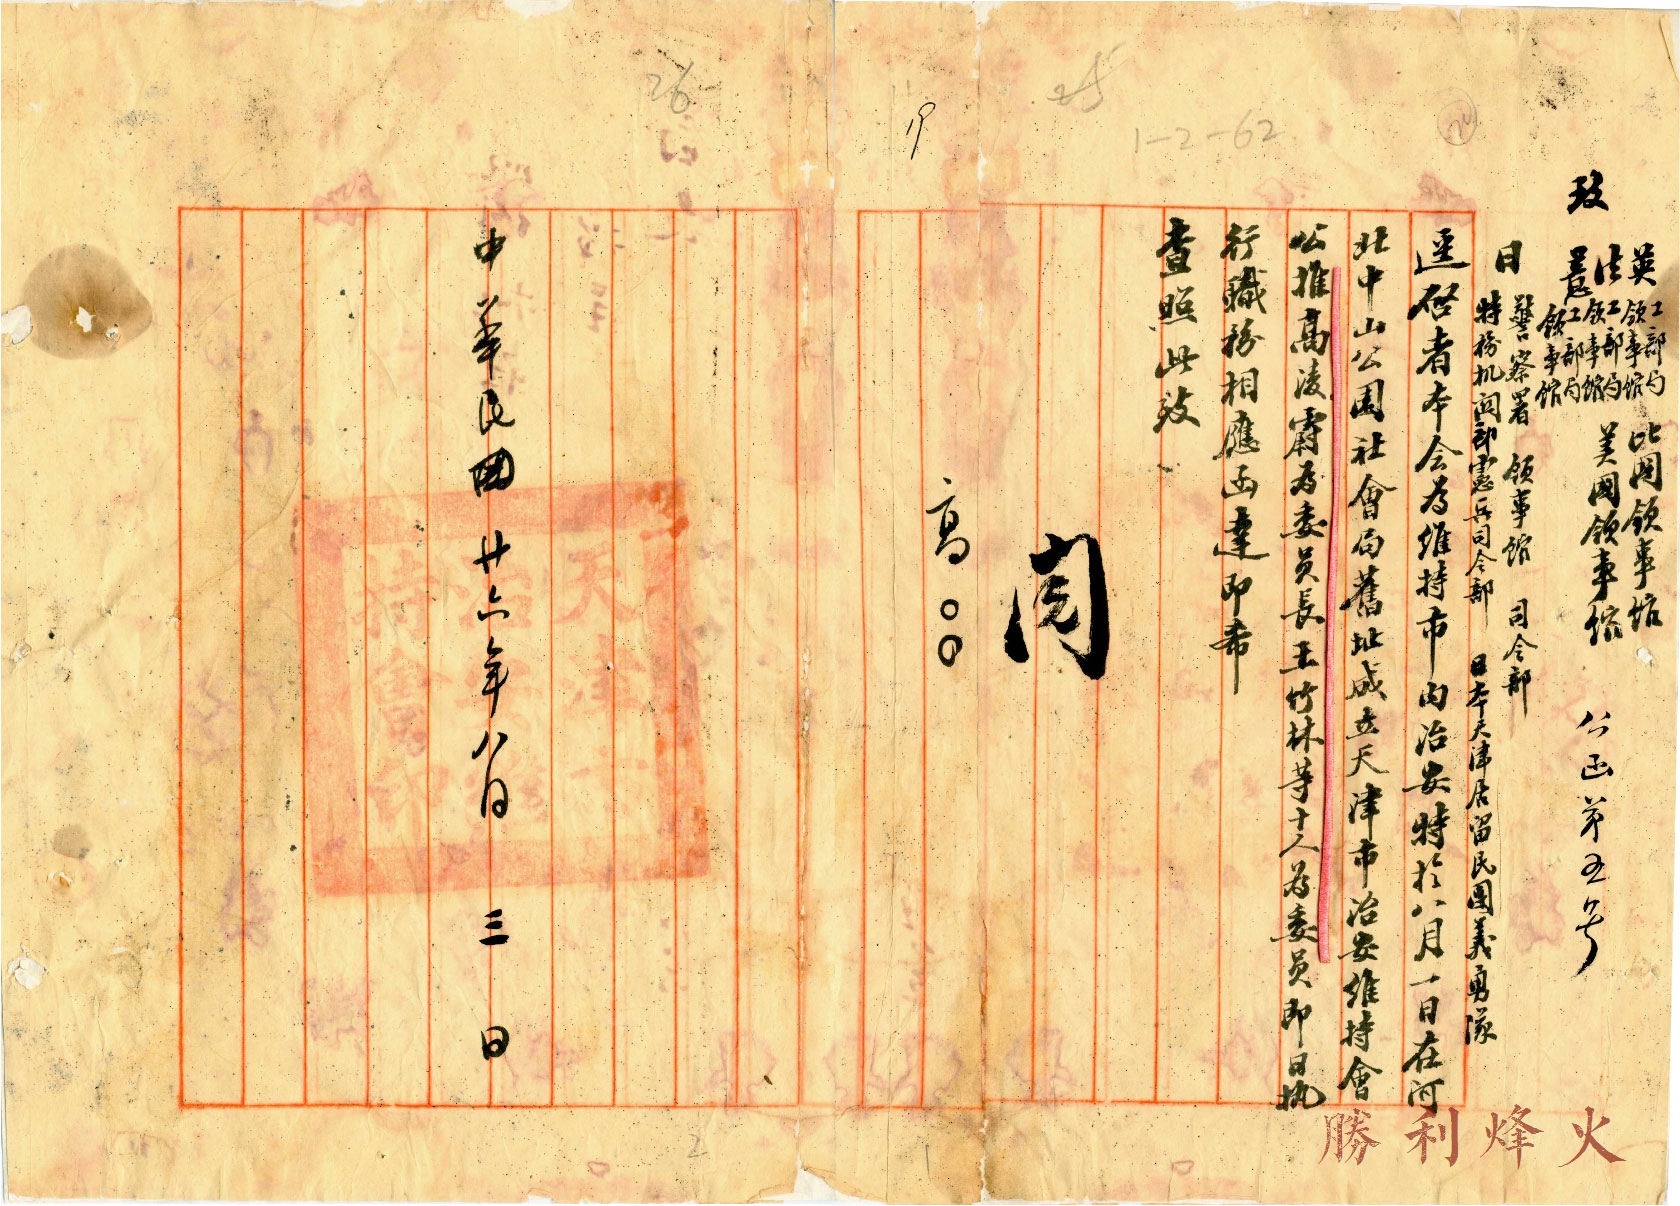 26
19
25
1-2-62
20
致
英工部局
領事館
法工部局
領事館
義工部局
領事館
比國領事館
美國領事館
公函第五号
日
警察署 領事館 司令部
特務机関部憲兵司令部 日本天津居留民團義勇隊
逕啓者本会為維持市内治安特於八月一日在河
北中山公園社會局舊址成立天津市治安維持會
公推高凌霨為委員長王竹林等十人為委員即日执
行職務相應函達即希
查照此致
高〇〇
中華民國廿六年八月三日
天津市
治安維
持會印
2
1
勝利烽火